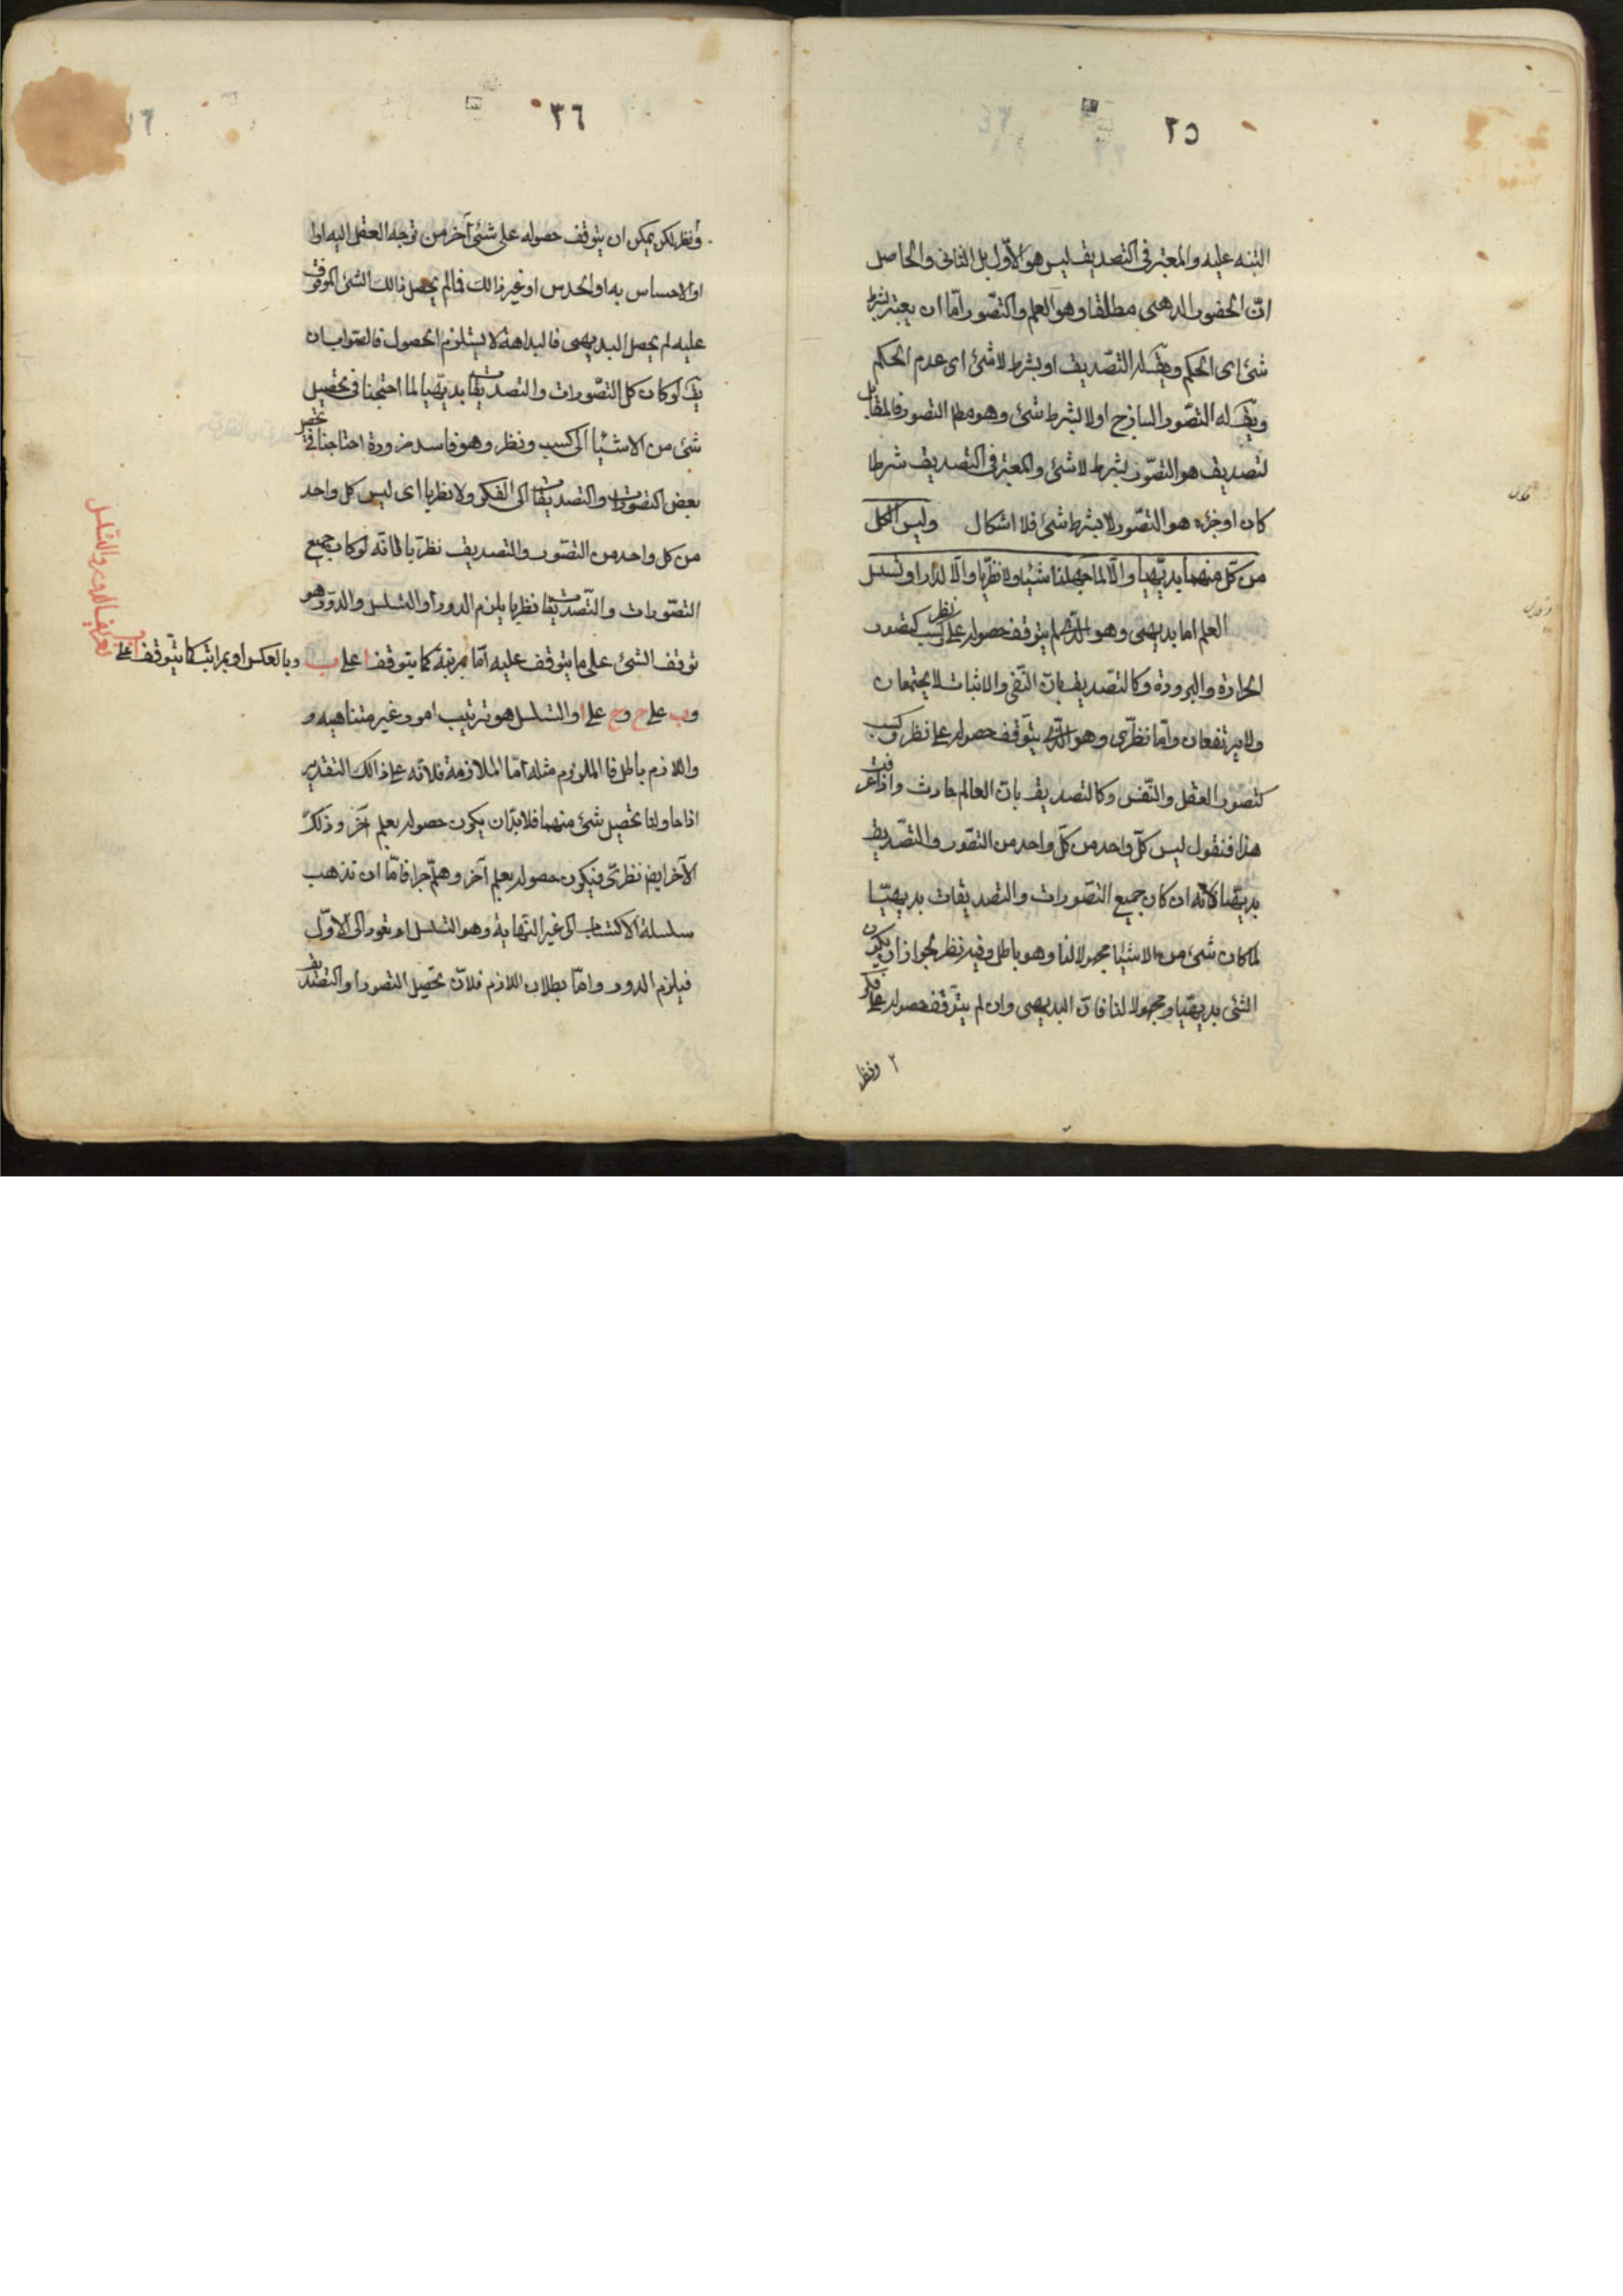 ٢٥
التنبه عليه والمعتبر فى التصديق ليس هو الاوّل بل الثانى والحاصل
انّ الحضور الذهنى مطلقا وهو العلم والتصّور امّا ان يعتبر بشرط
شئ اى الحكم ويقـ له التصّديق او بشرط لا شئ اى عدم الحكم
ويقـ له التصّور الساذج اولا بشرط شئ وهو مطـ التصور فالمقابل
لتصديق هو التصّور بشرط لا شئ والمعتبر فى التصديق شرطا
كان او جزءه هو التصّور لا بشرط شئ فلا اشكال وليس الكل
من كل منهما بديهيا والّا لما جهلنا شيئا ولا نظريّا والّا لدار او تسلسل
العلم اما بديهى وهو الذى لم يتوقف حصوله على نظر وكسب كتصور
الحرارة والبرودة وكالتصديق بانّ النّفى والاثبات لا يجتمعان
ولا يرتفعان وامّا نظرّى وهو الّذى يتّوقف حصوله على نظر وكسب
كتصّور العقل والنّفس وكالتصديق بانّ العالم حادث واذا عرفت
هذا فنقول ليس كلّ واحد من كلّ واحد من التصّور والتصّديق
بديهيّا لانّه ان كان جميع التصّورات والتصديقات بديهيّا
لما كان شئ من الاشيا مجهولا لنا وهو باطل وفيه نظر لجواز ان يكون
الشئ بديهيّا ومجهولا لنا فانّ البديهى وان لم يتّوقف حصوله على فكر
٢ ونظر
٣٦
ونظر لكن يمكن ان يتوقف حصوله على شئ آخر من توجه العقل اليه او
او الاحساس به او الحدس او غير ذالك فما لم يحصل ذالك الشئ الموقوف
عليه لم يحصل البديهى فالبداهة لا يستلزم الحصول فالصّواب ان
يقـ لو كان كل التصّورات والتصديقات بديهيّا لما احتجنا فى تحصيل
شئ من الاشيئا الى كسب ونظر وهو فاسد ضرورة احتاجنا فى تحصيل
بعض التصورات والتصديقات الى الفكر ولا نظريا اى ليس كل واحد
من كل واحد من التصّور والتصديق نظرّيا فانّه لو كان جميع
التصّورات والتّصديقات نظريا يلزم الدور او التسلسل والدوّر هو
توقف الشئ على ما يتوقف عليه امّا بمرتبة كما يتوقف ا على ب وبالعكس او بمراتب كما يتّوقف ا على
تعريف الدور والتسلسل
وب على ج وج على ا والتسلسل هو ترتيب امور غير متناهيه و
واللازم باطل فالملزوم مثله امّا الملازمة فلانّه على ذالك التقدير
اذا حاولنا تحصيل شئ منهما فلا بدّ ان يكون حصوله بعلم آخر وذلك
الآخر ايضـ نظرىّ فيكون حصوله بعلم آخر وهلّم جرا فامّا ان تذهب
سلسلة الاكتساب الى غير النّهاية وهو التسلسل او تعود الى الاوّل
فيلزم الدور وامّا بطلان اللازم فلانّ تحصّيل التصور او التصّديق